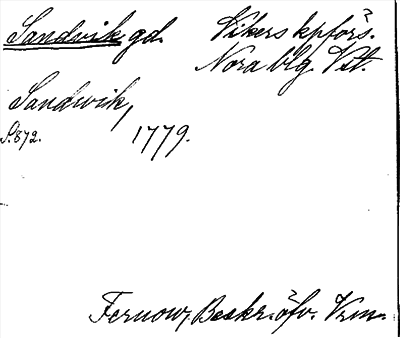 Sandvik gd. Vikers kpförs.
Nora blg. Vstl.
Sandwik,
S. 872. 1779.
Fernow, Beskr. öfv. Vrm.